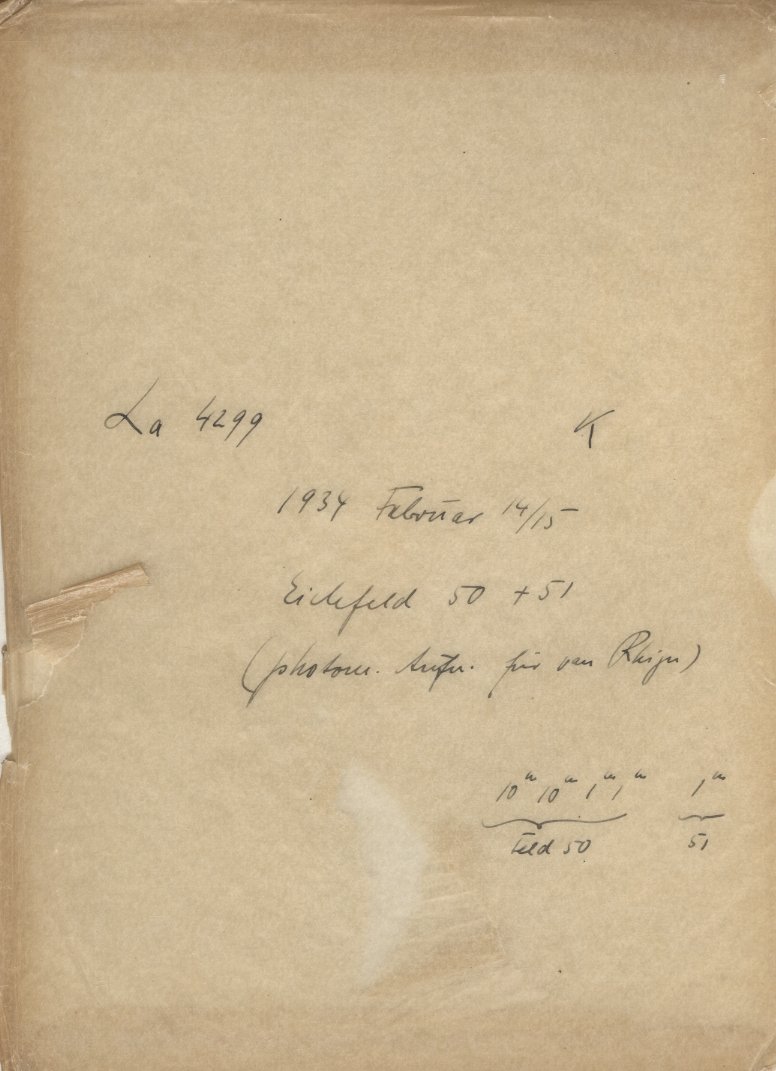 La 4299 K
1934 Februar 14/15
Eichfeld 50 + 51
(photom. Aufn. für van Rhijn)
10ᵐ 10ᵐ 1ᵐ 1ᵐ 1ᵐ
Feld 50 51